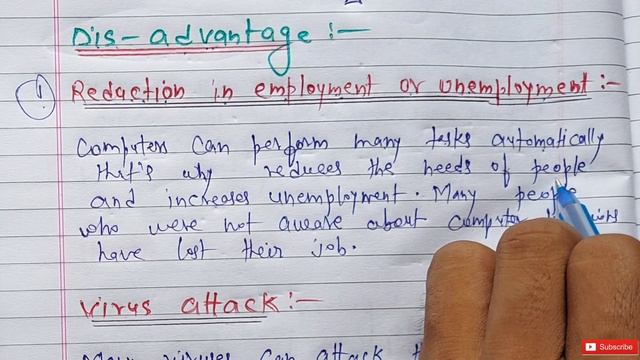 Dis-advantage :-
① Redaction in employment or Unemployment :-
Computers can perform many tasks automatically
that's why reduces the needs of people
and increases unemployment. Many people
who were not aware about computer
have lost their job.
Virus attack :-
Many viruses can attack
Subscribe